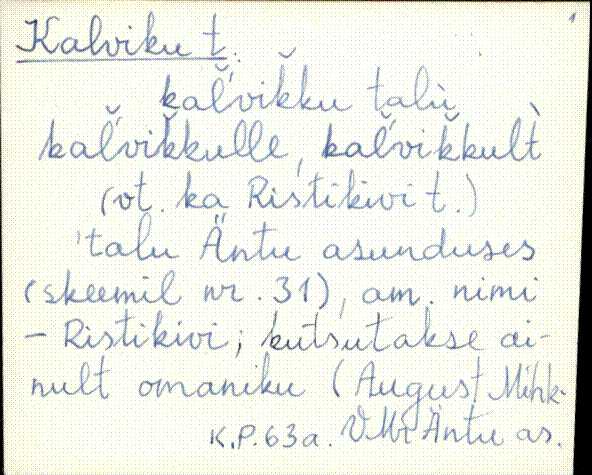 1
Kalviku t.
kal̆'vik̆ku talù
kal̆'vik̆kulle, kal̆'vik̆kult̀
(vt. ka Ristikivi t.)
'talu Äntu asunduses
(skeemil nr. 31), am. nimi
– Ristikivi; kutsutakse ai-
nult omaniku (August Mihk-
K.P.63a. VMr Äntu as.